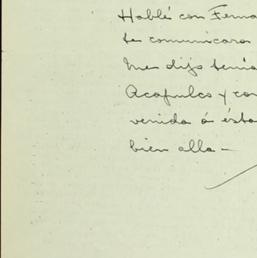 Hablé con Ferna
te comunicara
Me dijo tenía
Acapulco y con
venida á ésta
bien alla –